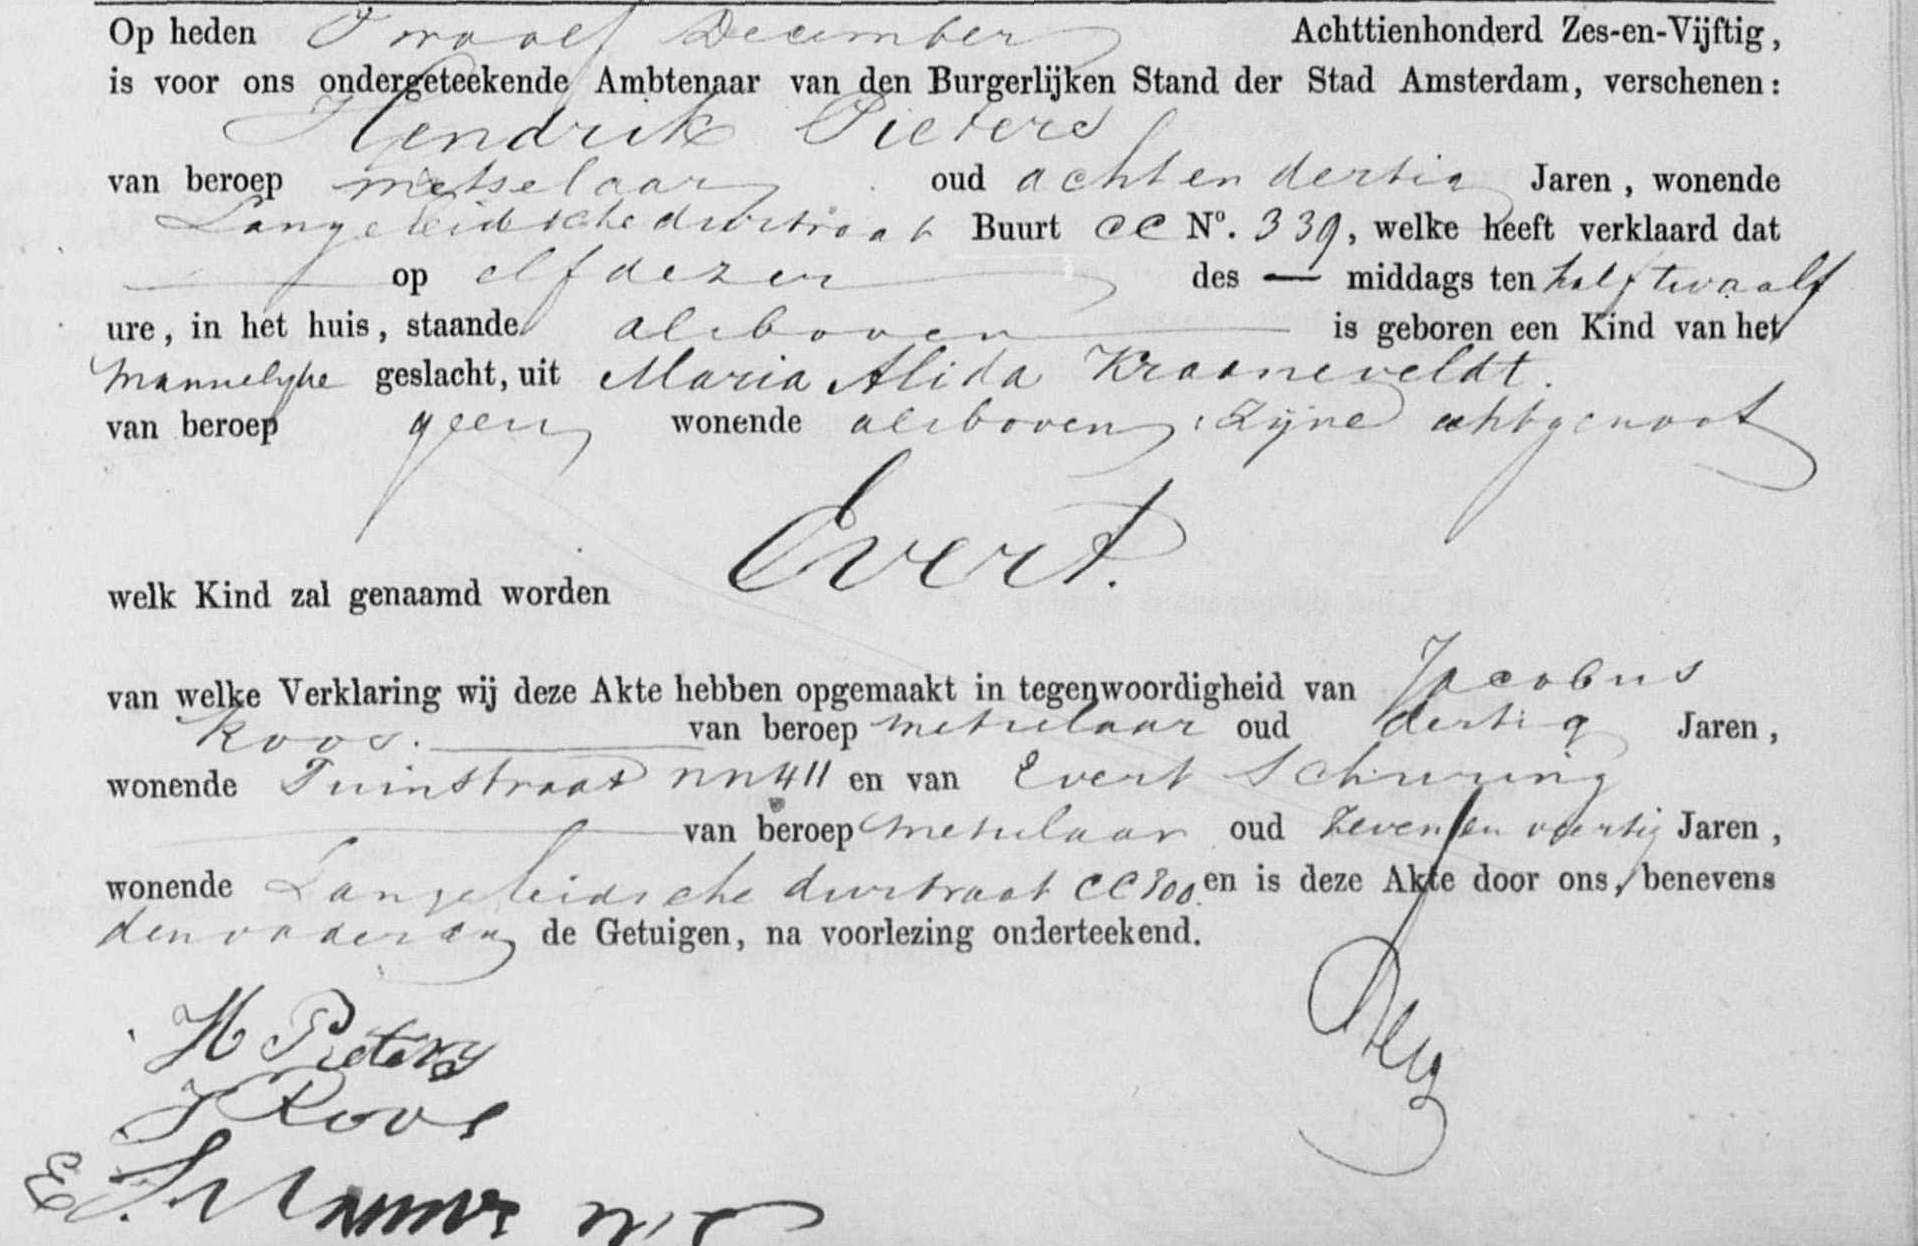 Op heden Twaalf December Achttienhonderd Zes-en-Vijftig,
is voor ons ondergeteekende Ambtenaar van den Burgerlijken Stand der Stad Amsterdam, verschenen:
Hendrik Pieters
van beroep metselaar oud achtendertig Jaren, wonende
Langeleidschedwstraat Buurt CC Nº. 339, welke heeft verklaard dat
op elf dezer des — middags ten half twaalf
ure, in het huis, staande alsboven is geboren een Kind van het
Mannelyke geslacht, uit Maria Alida Kraaneveldt.
van beroep geen wonende alsboven, Zyne echtgenoot
welk Kind zal genaamd worden Evert.
van welke Verklaring wij deze Akte hebben opgemaakt in tegenwoordigheid van Jacobus
Koos. van beroep metselaar oud dertig Jaren,
wonende Tuinstraat NN 411 en van Evert Schuring
van beroep metselaar oud Zevenenveertig Jaren,
wonende Langeleidsche dwstraat CC 300. en is deze Akte door ons, benevens
den vader en de Getuigen, na voorlezing onderteekend.
H Pieters
J Koos
E